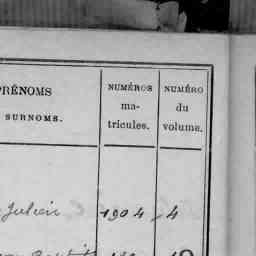 PRÉNOMS
SURNOMS.
NUMÉROS
ma-
tricules.
NUMÉRO
du
volume.
Julien 1904 4